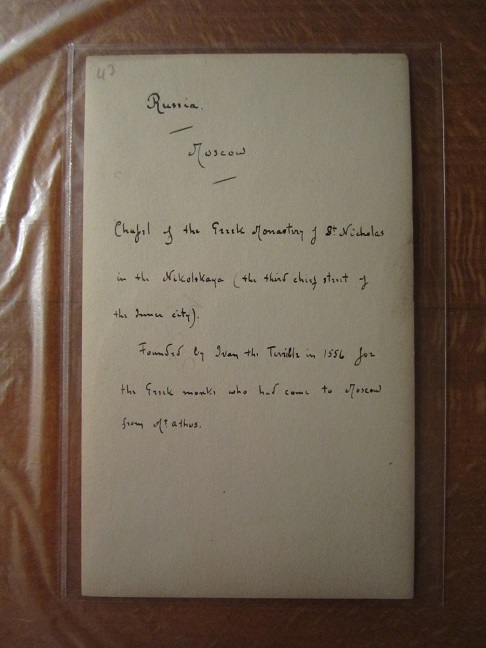 43
Russia.
Moscow
Chapel of the Greek Monastery of St Nicholas
in the Nikolskaya (the third chief street of
the Inner city).
Founded by Ivan the Terrible in 1556 for
the Greek monks who had come to Moscow
from Mt Athos.